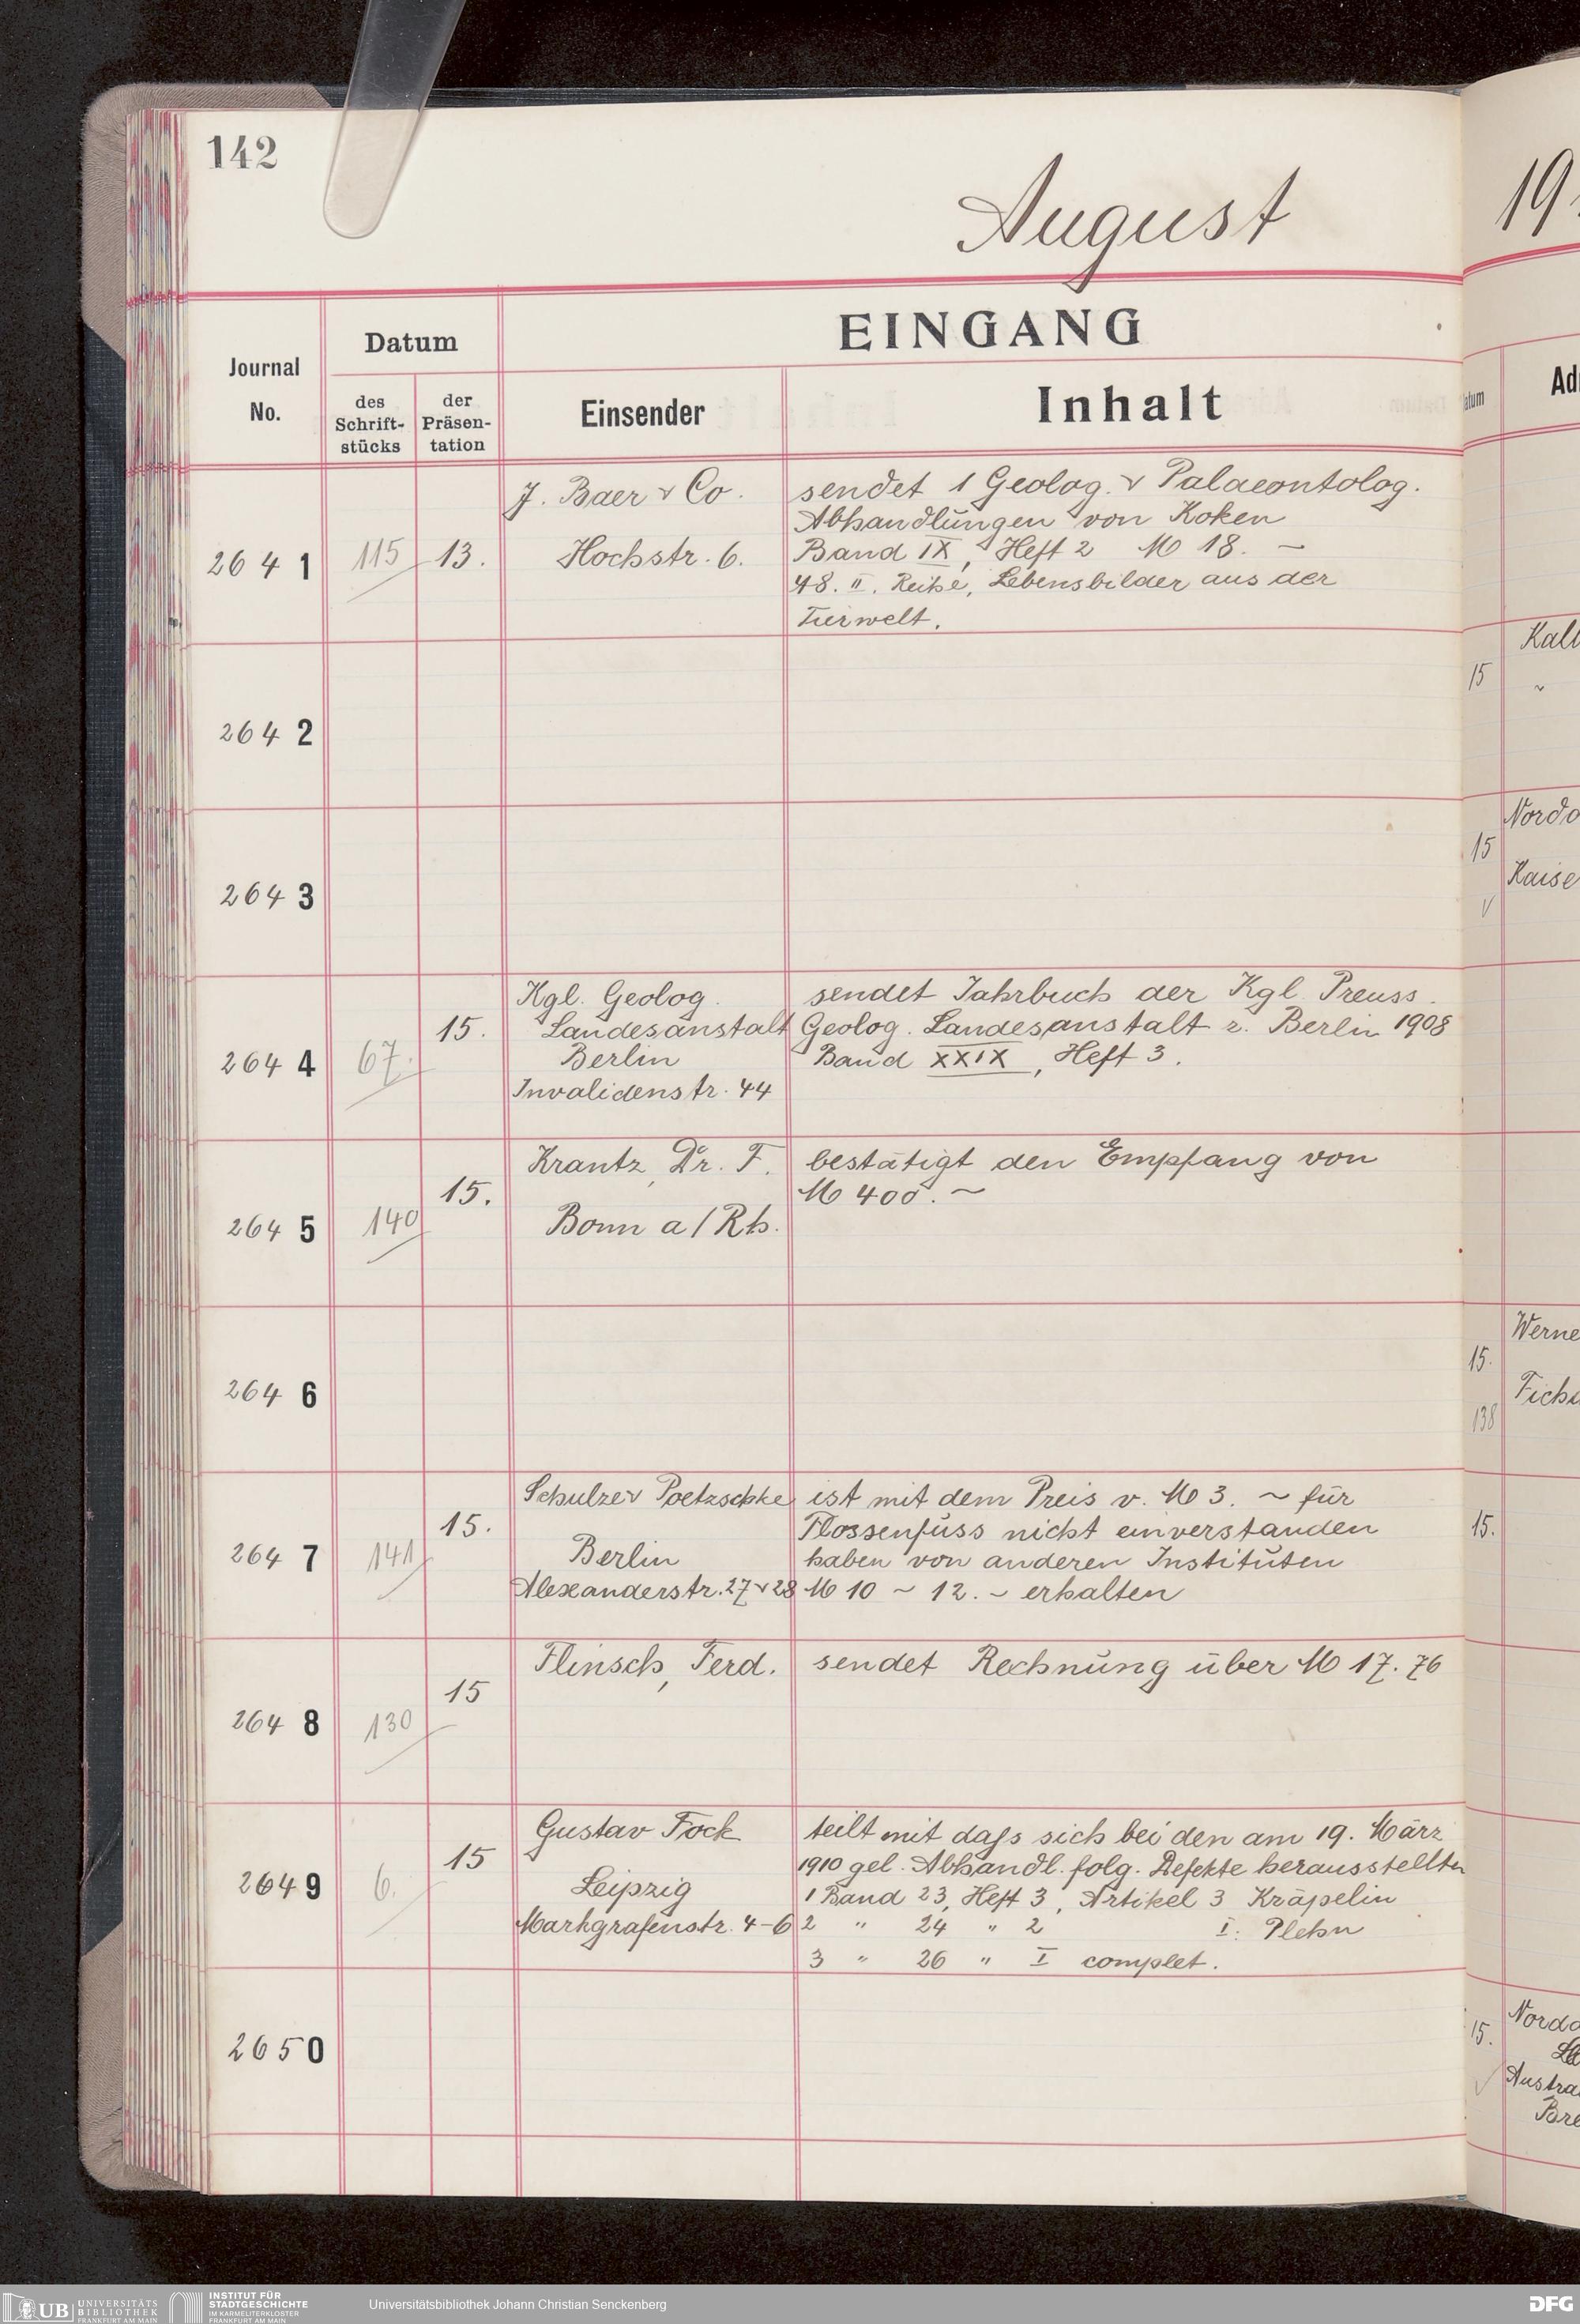 142
August
19
EINGANG
Datum
Journal
No.
des
Schrift-
stücks
der
Präsen-
tation
Einsender
Inhalt
2641 115 13.
J. Baer & Co.
Hochstr. 6.
sendet 1 Geolog. & Palaeontolog.
Abhandlungen von Koken
Band IX, Heft 2 M 18. —
48. II. Reihe, Lebensbilder aus der
Tierwelt.
2642
2643
2644 67. 15.
Kgl. Geolog.
Landesanstalt
Berlin
Invalidenstr. 44
sendet Jahrbuch der Kgl. Preuss.
Geolog. Landesanstalt z. Berlin 1908
Band XXIX, Heft 3.
2645 140 15.
Krantz, Dr. F.
Bonn a/Rh.
bestätigt den Empfang von
M 400. ~
2646
2647 141 15.
Schulze & Poetzschke
Berlin
Alexanderstr. 27 & 28
ist mit dem Preis v. M 3. ~ für
Flossenfuss nicht einverstanden
haben von anderen Instituten
M 10 ~ 12. ~ erhalten
2648 130 15
Flinsch, Ferd.
sendet Rechnung über M 17. 76
2649 6. 15
Gustav Fock
Leipzig
Markgrafenstr. 4-6
teilt mit daß sich bei den am 19. März
1910 gel. Abhandl. folg. Defekte herausstellten
1 Band 23, Heft 3, Artikel 3 Kräpelin
2 " 24 " 2 I. Plehn
3 " 26 " I complet.
2650
Ad
15
15
15.
138
15.
15.
UB UNIVERSITÄTS
BIBLIOTHEK
FRANKFURT AM MAIN
INSTITUT FÜR
STADTGESCHICHTE
IM KARMELITERKLOSTER
FRANKFURT AM MAIN
Universitätsbibliothek Johann Christian Senckenberg
DFG